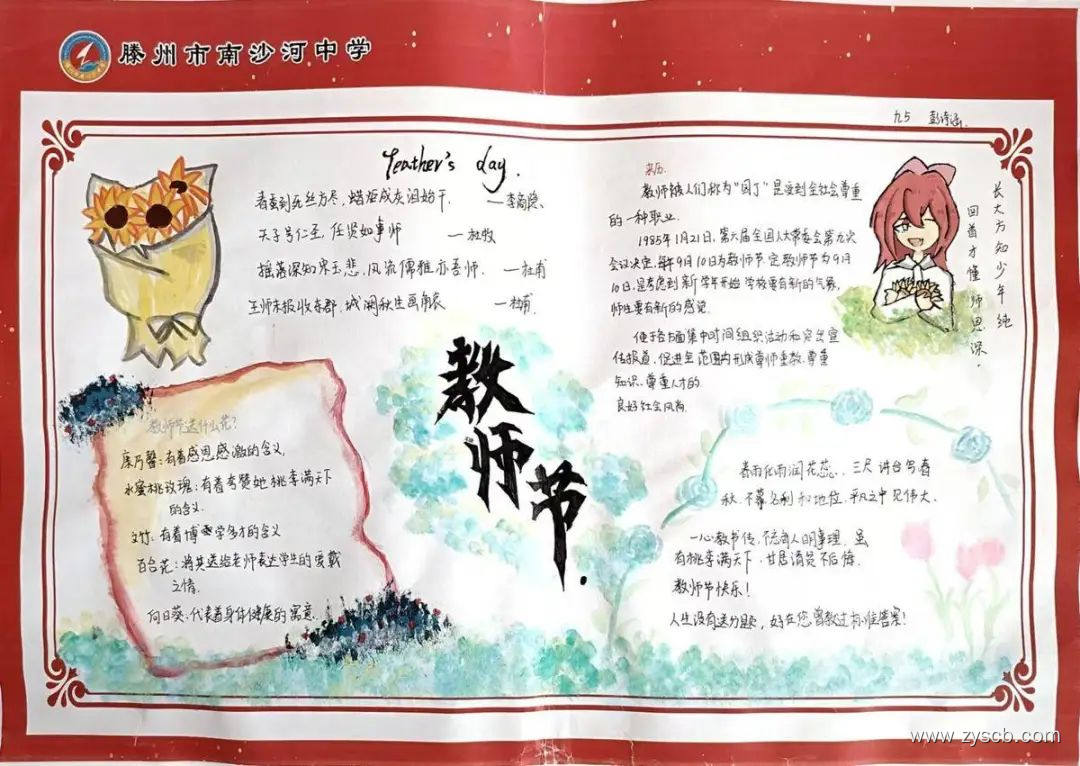 滕州市南沙河中学
九5 彭诗涵
Teather's day.
春蚕到死丝方尽,蜡炬成灰泪始干. —李商隐
天子号仁圣,任贤如事师 —杜牧
摇落深知宋玉悲,风流儒雅亦吾师. —杜甫
王师未报收东郡,城阙秋生画角哀 —杜甫.
教师节.
来历.
教师被人们称为“园丁”是受到全社会尊重
的一种职业.
1985年1月21日,第六届全国人大常委会第九次
会议决定,每年9月10日为教师节.定教师节为9月
10日,是考虑到新学年开始学校要有新的气象,
师生要有新的感觉.
便于各方面集中时间组织活动和突出宣
传报道,促进全范围内形成尊师重教,尊重
知识,尊重人才的
良好社会风尚.
长大方知少年纯
回首才懂师恩深.
教师节送什么花?
康乃馨:有着感恩感激的含义,
水蜜桃玫瑰:有着夸赞她桃李满天下
的含义.
文竹:有着博学多才的含义
百合花:将其送给老师表达学生的爱戴
之情.
向日葵:代表着身体健康的寓意.
春雨化雨润花蕊,三尺讲台写春
秋.不慕名利和地位,平凡之中见伟大.
一心教书传,不言育人明事理.虽
有桃李满天下,甘居清贫不后悔.
教师节快乐!
人生没有送分题,好在您曾教过标准答案!
www.zyscb.com